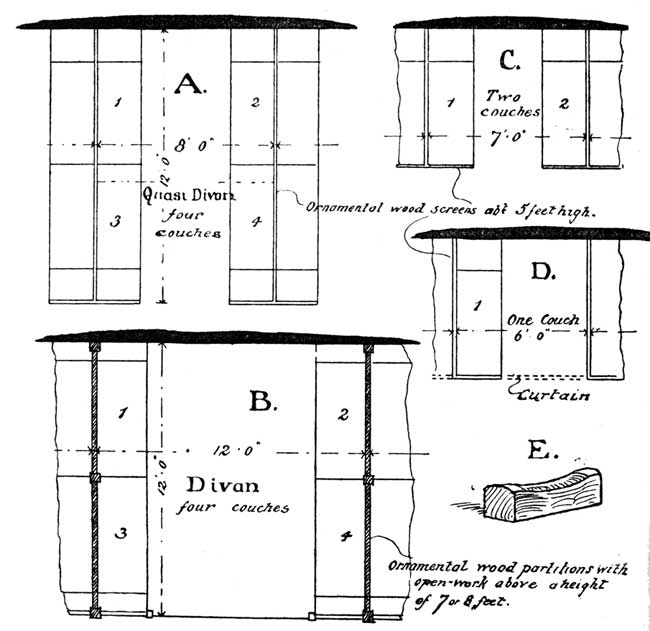 A.
1
2
8' 0"
12' 0"
Quasi Divan
four
couches
3
4
C.
1
Two
couches
2
7' 0"
Ornamental wood screens abt 5 feet high.
D.
1
One Couch
6' 0"
Curtain
B.
1
2
12' 0"
12' 0"
Divan
four couches
3
4
E.
Ornamental wood partitions with
open-work above a height
of 7 or 8 feet.